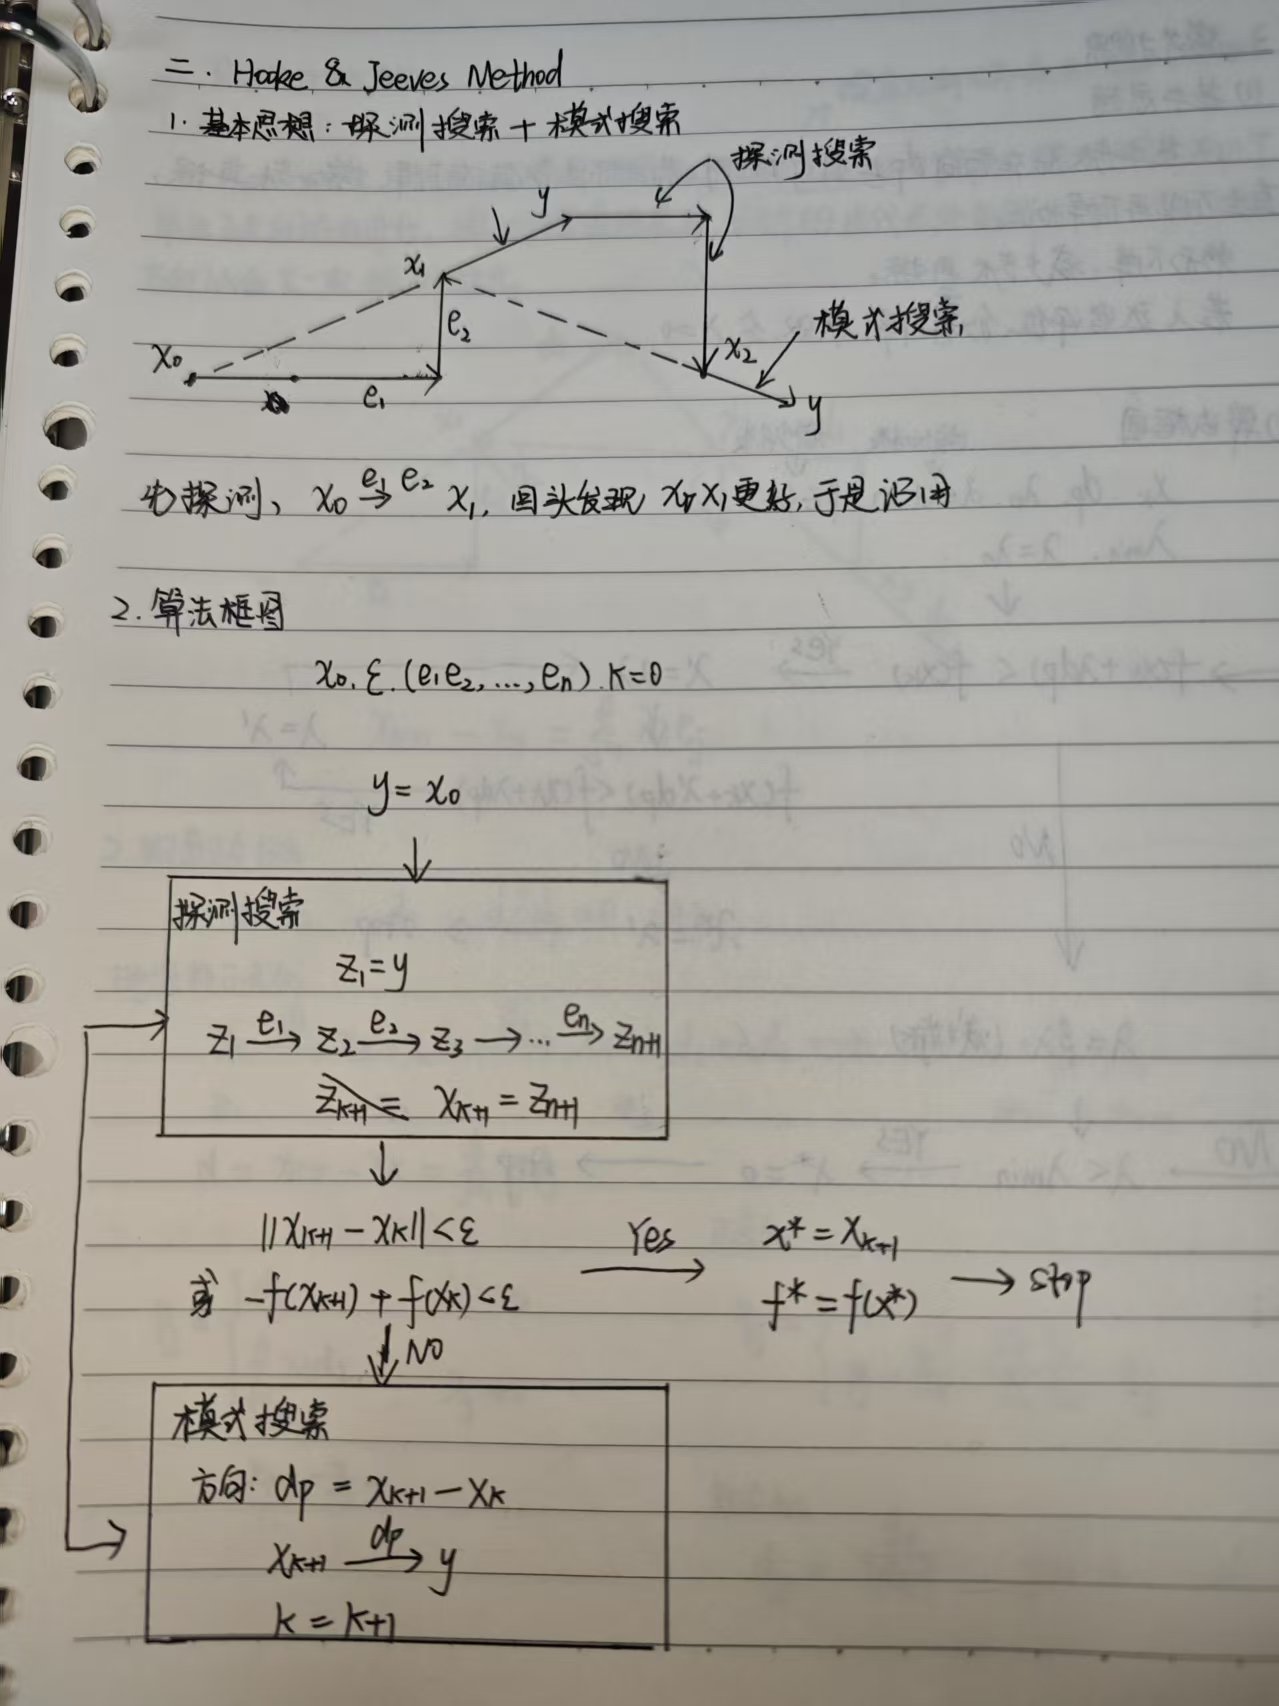 二. Hooke & Jeeves Method
1. 基本思想: 探测搜索 + 模式搜索
探测搜索
y
x₁
e₂
模式搜索
x₀
x₂
e₁
y
先探测, x₀ →(e₁) e₂ x₁, 回头发现 x₀x₁更好, 于是沿用
2. 算法框图
x₀. ε. (e₁e₂, ..., eₙ). K=0
y = x₀
探测搜索
z₁ = y
z₁ →(e₁) z₂ →(e₂) z₃ → ... →(eₙ) zₙ₊₁
z_{K+1} = x_{K+1} = z_{n+1}
||x_{K+1} - x_K|| < ε Yes x* = x_{K+1}
或 -f(x_{K+1}) + f(x_K) < ε → f* = f(x*) → stop
↓ NO
模式搜索
方向: dp = x_{K+1} - x_K
x_{K+1} →(dp) y
K = K+1